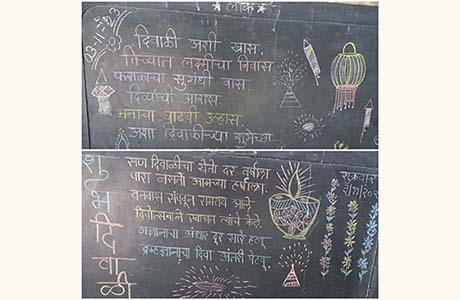 लोक
दिवाळी अशी खास.
तिच्यात लक्ष्मीचा निवास
फराळाचा सुगंधी वास.
दिव्यांची आरास.
मनाचा वाढवी उल्हास.
अशा दिवाळीच्या शुभेच्छा
शुभ दिवाळी
सण दिवाळीचा येतो दर वर्षाला
पारा नसतो आमच्या हर्षाला.
वनवास संपवून रामराय आले.
दिपोत्सवाने स्वागत त्यांचे केले.
अज्ञानाचा अंधार दूर सारे हळू
ब्रम्हज्ञानाचा दिवा अंतरी पेटवू
शुक्रवार